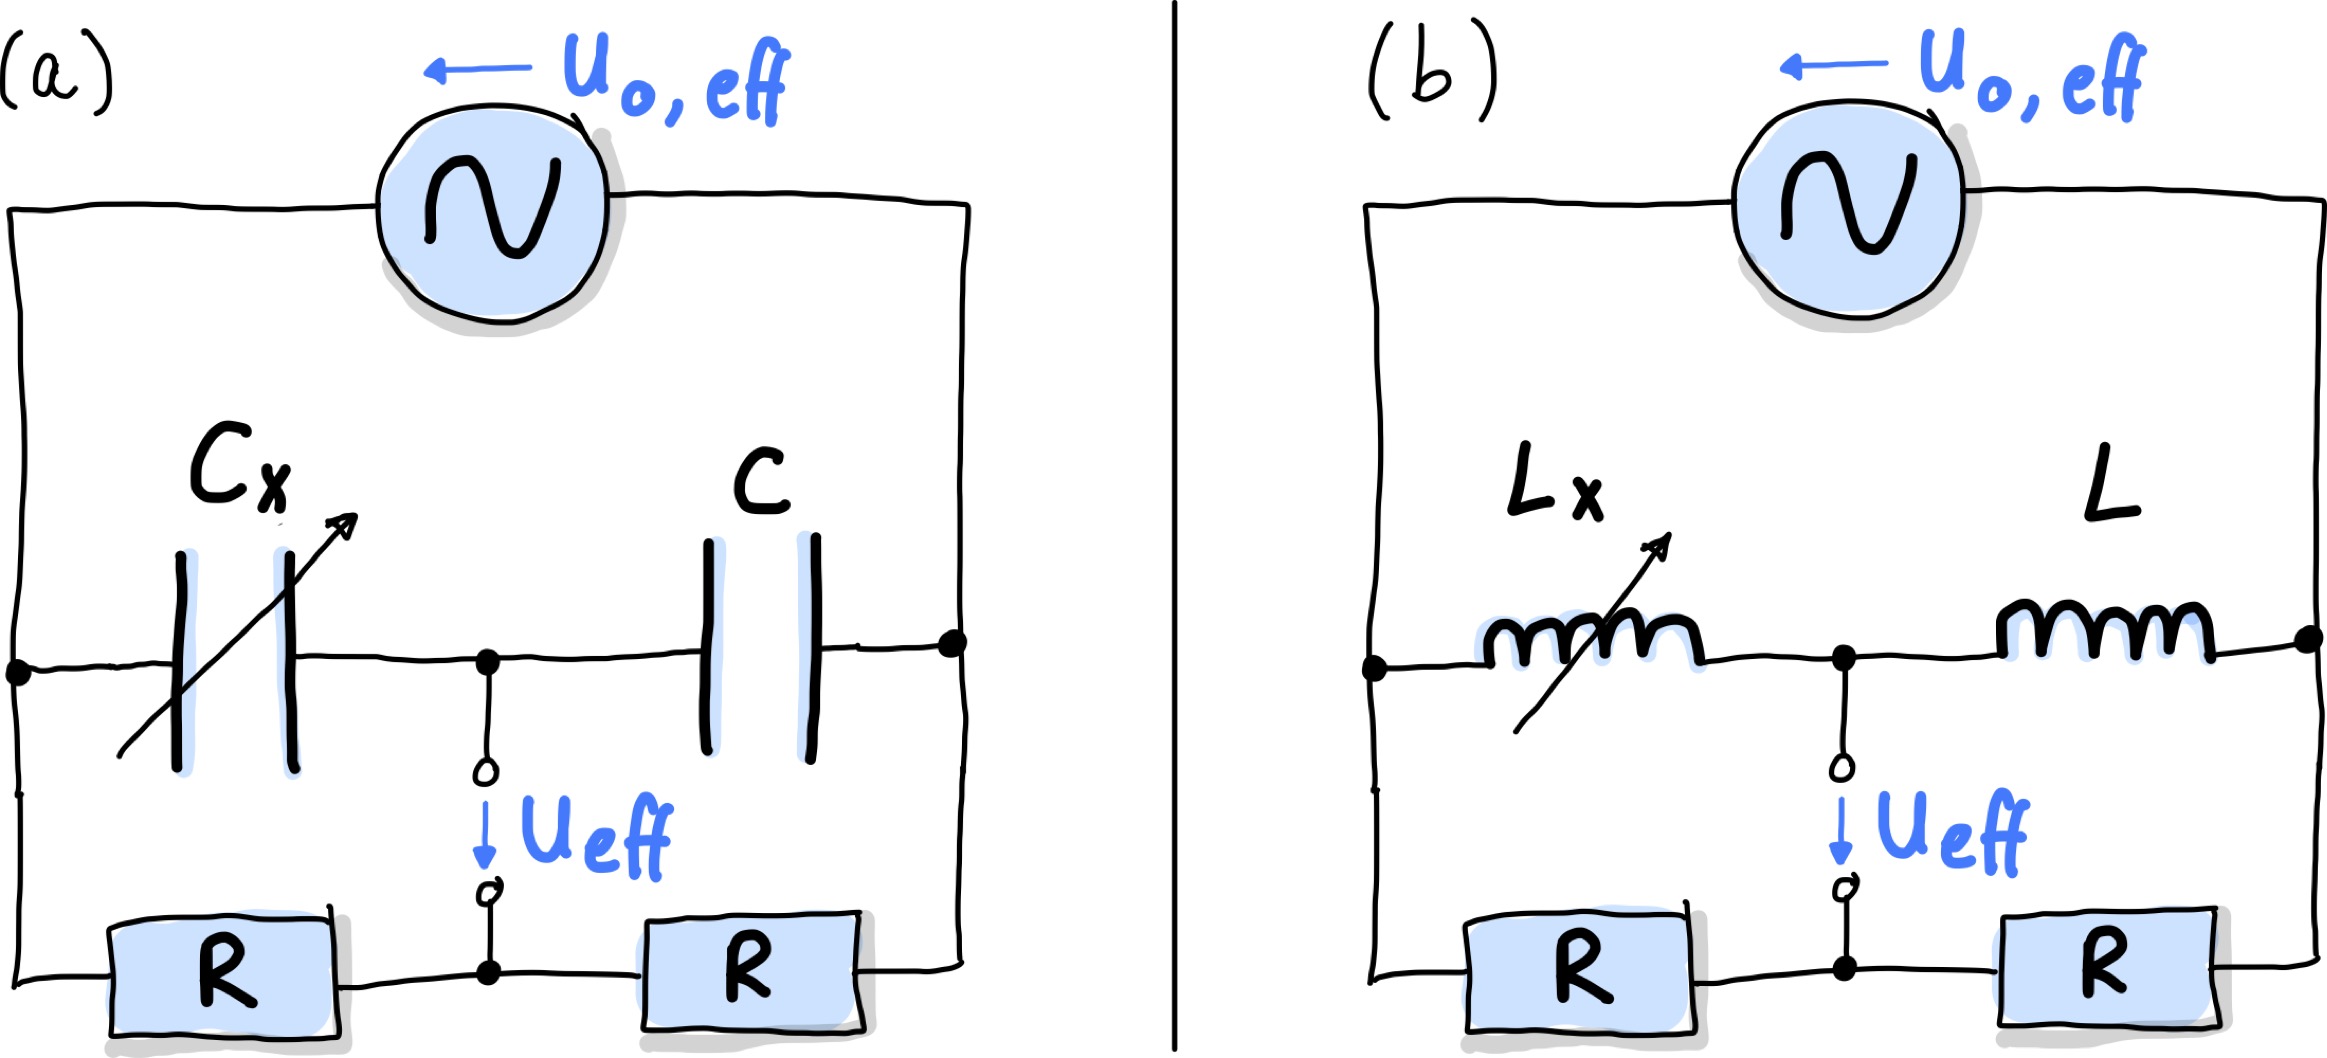 (a)
U0, eff
Cx
C
Ueff
R
R
(b)
U0, eff
Lx
L
Ueff
R
R